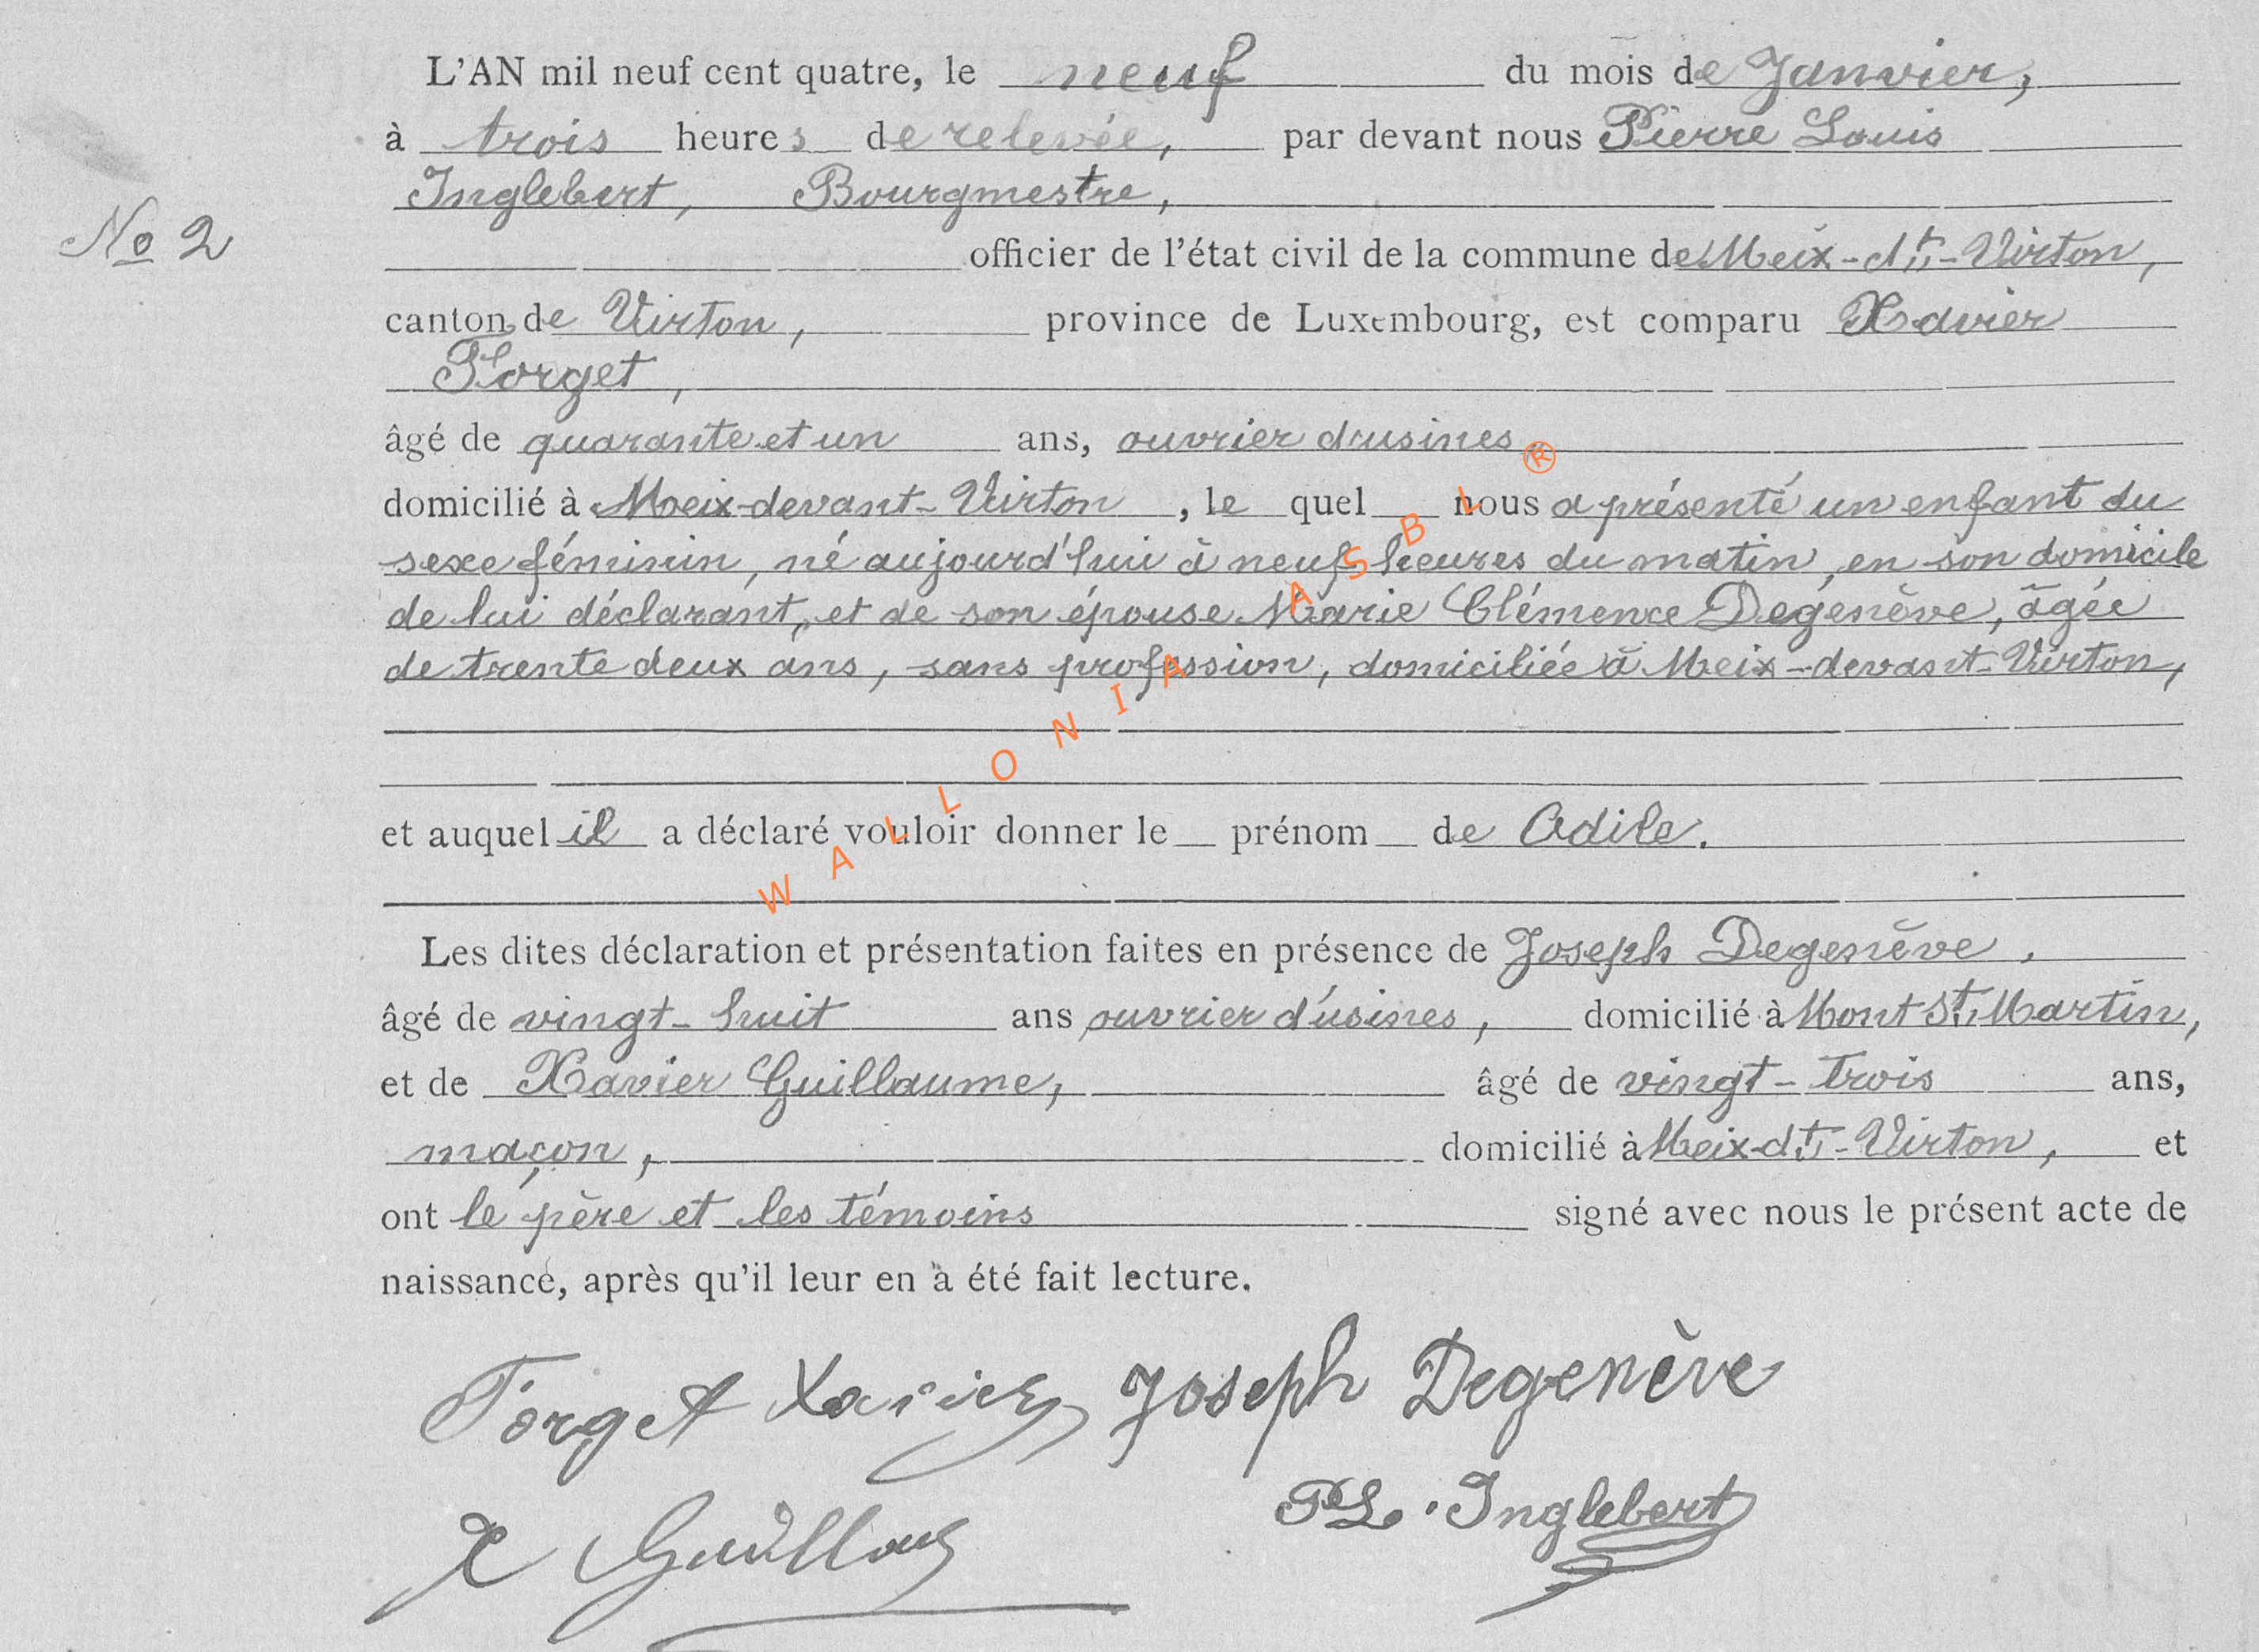 L'AN mil neuf cent quatre, le neuf du mois de Janvier,
à trois heures de relevée, par devant nous Pierre Louis
Inglebert, Bourgmestre,
No 2
officier de l'état civil de la commune de Meix-dt-Virton,
canton de Virton, province de Luxembourg, est comparu Xavier
Forget,
âgé de quarante et un ans, ouvrier d'usines
domicilié à Meix-devant-Virton, le quel nous a présenté un enfant du
sexe féminin, né aujourd'hui à neuf heures du matin, en son domicile
de lui déclarant, et de son épouse Marie Clémence Degenève, âgée
de trente deux ans, sans profession, domiciliée à Meix-devant-Virton,
et auquel il a déclaré vouloir donner le prénom de Odile.
Les dites déclaration et présentation faites en présence de Joseph Degenève,
âgé de vingt-huit ans ouvrier d'usines, domicilié à Mont St Martin,
et de Xavier Guillaume, âgé de vingt-trois ans,
maçon, domicilié à Meix-dt-Virton, et
ont le père et les témoins signé avec nous le présent acte de
naissance, après qu'il leur en a été fait lecture.
Forget Xavier Joseph Degenève
PL. Inglebert
X Guillau
WALLONIA ASBL ®